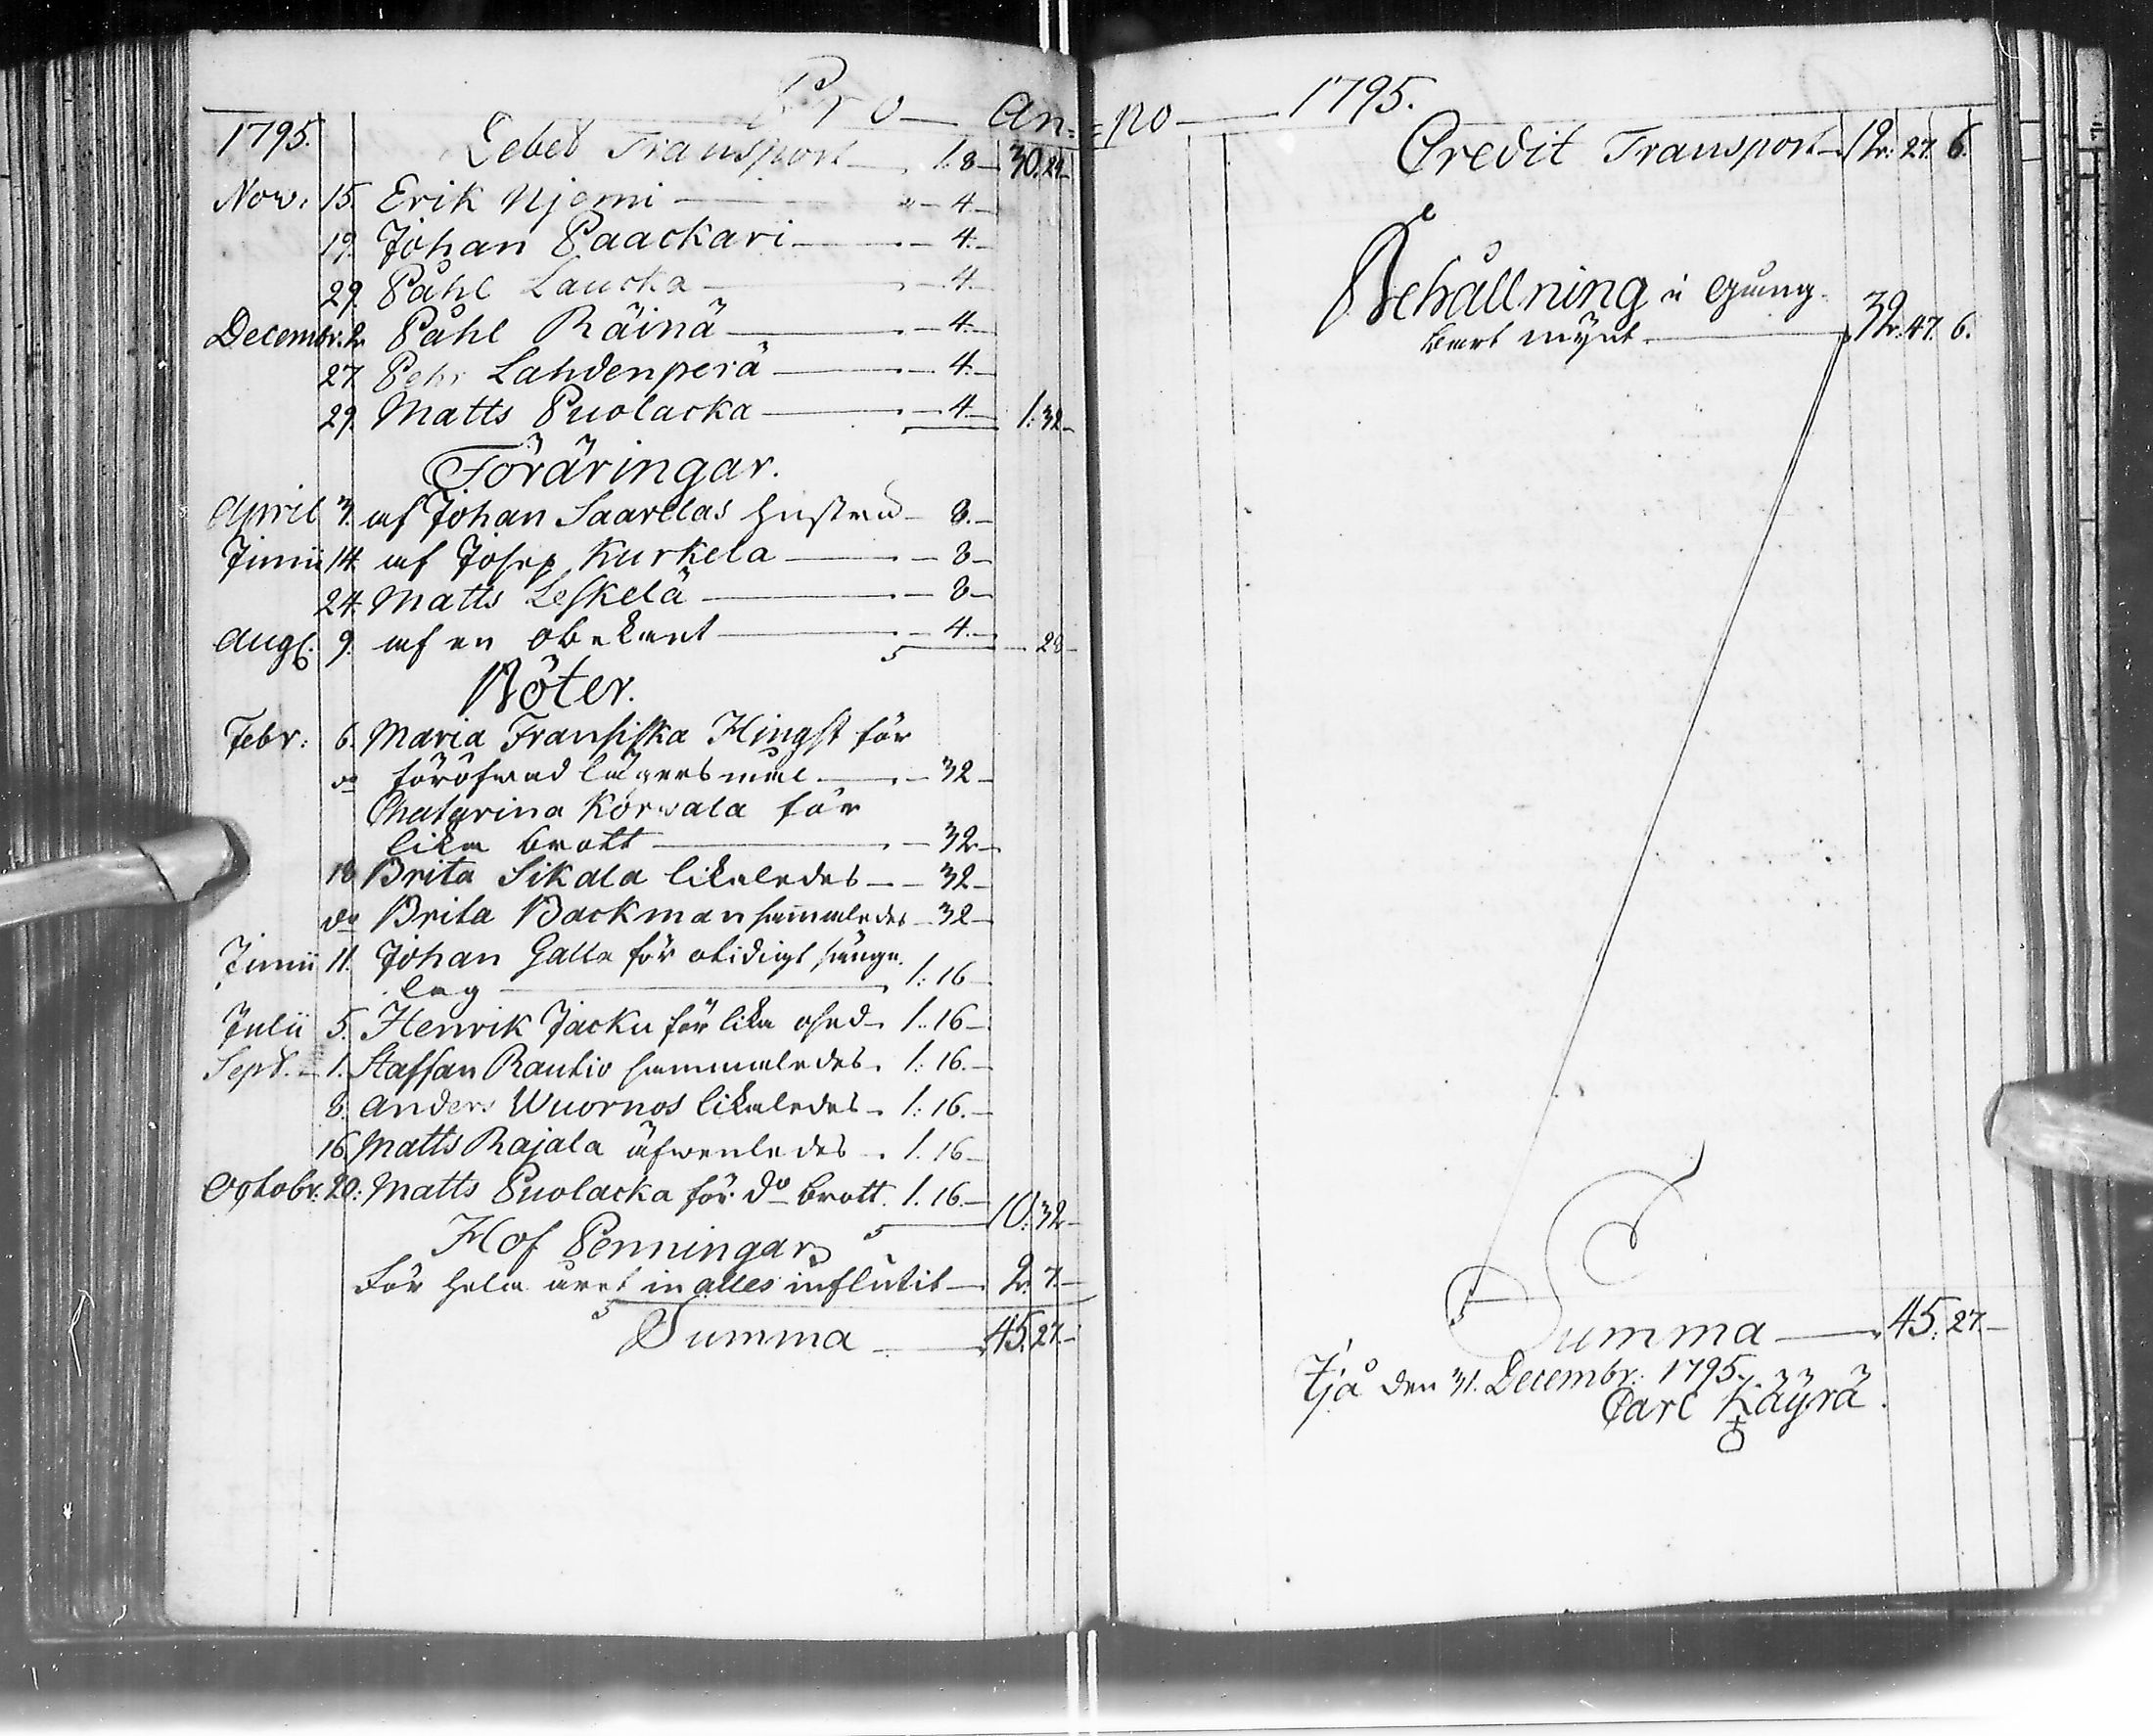 Pro — An=
1795. Debet Transport — 1. 8 — 30. 24 —
Nov: 15. Erik Njemi — 4 —
19. Johan Paackari — 4. —
29. Påhl Laucka — 4. —
Decembr. 2. Påhl Räinä — 4. —
27. Pehr Lahdenperä — 4. —
29. Matts Puolacka — 4 — 1: 32 —
Föräringar.
April 3. af Johan Saarelas hustru — 8. —
Junii 14. af Josep Kurkela — 8 —
24. Matts Leskelä — 8 —
Aug. 9. af en obekant — 4. — 28 —
Böter.
Febr: 6. Maria Fransiska Hingst för
do föröfwad lägersmål — 32 —
Chatarina Korwala för
lika brott — 32 —
18 Brita Sikala likaledes — 32 —
do Brita Backman sammaledes — 32 —
Junii 11. Johan Galla för otidigt sänge
lag — 1: 16 —
Julii 5. Henrik Jacku för lika osed — 1. 16 —
Sept. — 1. Staffan Rautio sammaledes. 1: 16. —
8. Anders Wuornos likaledes — 1: 16. —
16. Matts Rajala äfwenledes — 1. 16 —
Octobr: 20: Matts Puolacka för do brott. 1. 16. — 10: 32 —
Hof Penningar
För hela året in alles influtit — 2. 7. —
Summa — 45. 27. —
=no — 1795.
Credit Transport — 12: 27. 6.
Behållning i gång-
bart mynt — 32. 47. 6.
Summa — 45: 27. —
Ijå den 31. Decembr: 1795.
Carl Käyrä.